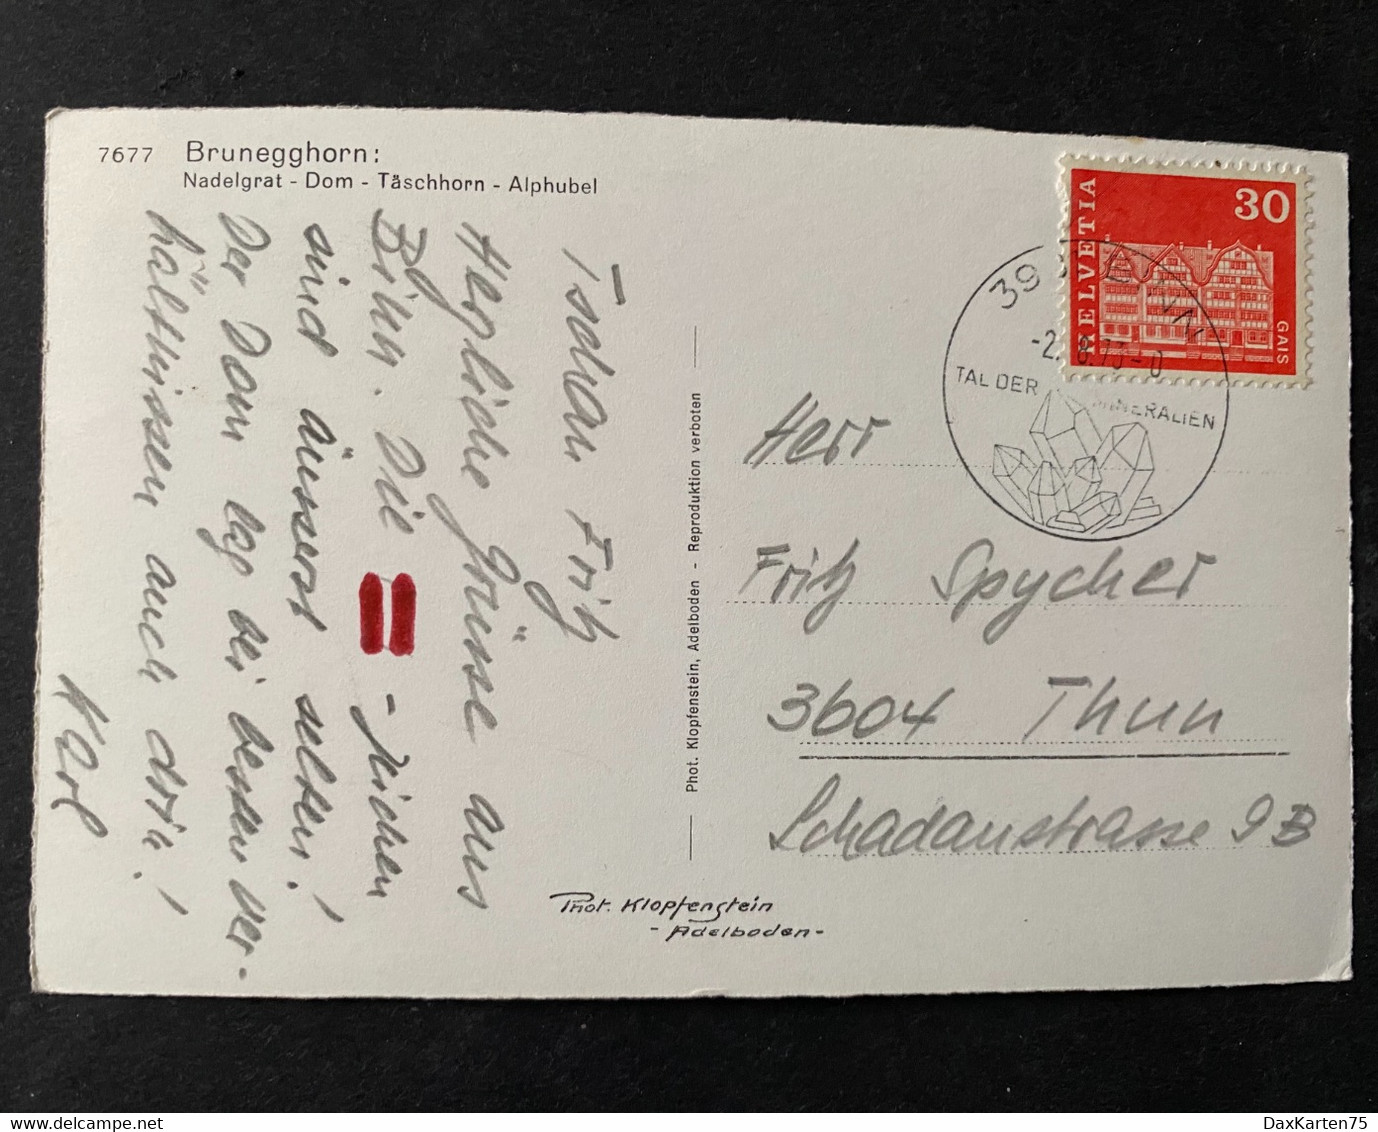 7677 Brunegghorn:
Nadelgrat - Dom - Täschhorn - Alphubel
Tschau Fritz
Herzliche Grüsse aus
Binn. Die = -Zeichen
sind äusserst selten!
Der Dom lag bei besseren Ver-
hältnissen auch drin!
Karl
Phot. Klopfenstein, Adelboden - Reproduktion verboten
Phot. Klopfenstein
- Adelboden -
HELVETIA
30
GAIS
39 BINN
-2. 8. 73 - 0
TAL DER MINERALIEN
Herr
Fritz Spycher
3604 Thun
Schadaustrasse 9B
DaxKarten75